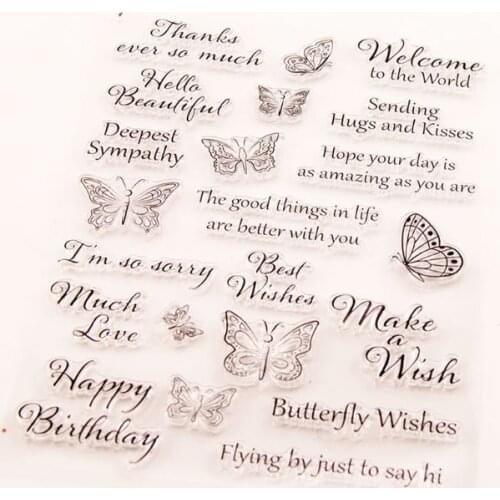 Thanks
ever so much
Welcome
to the World
Hello
Beautiful
Sending
Hugs and Kisses
Deepest
Sympathy
Hope your day is
as amazing as you are
The good things in life
are better with you
I'm so sorry
Best
Wishes
Much
Love
Make
a
Wish
Happy
Birthday
Butterfly Wishes
Flying by just to say hi